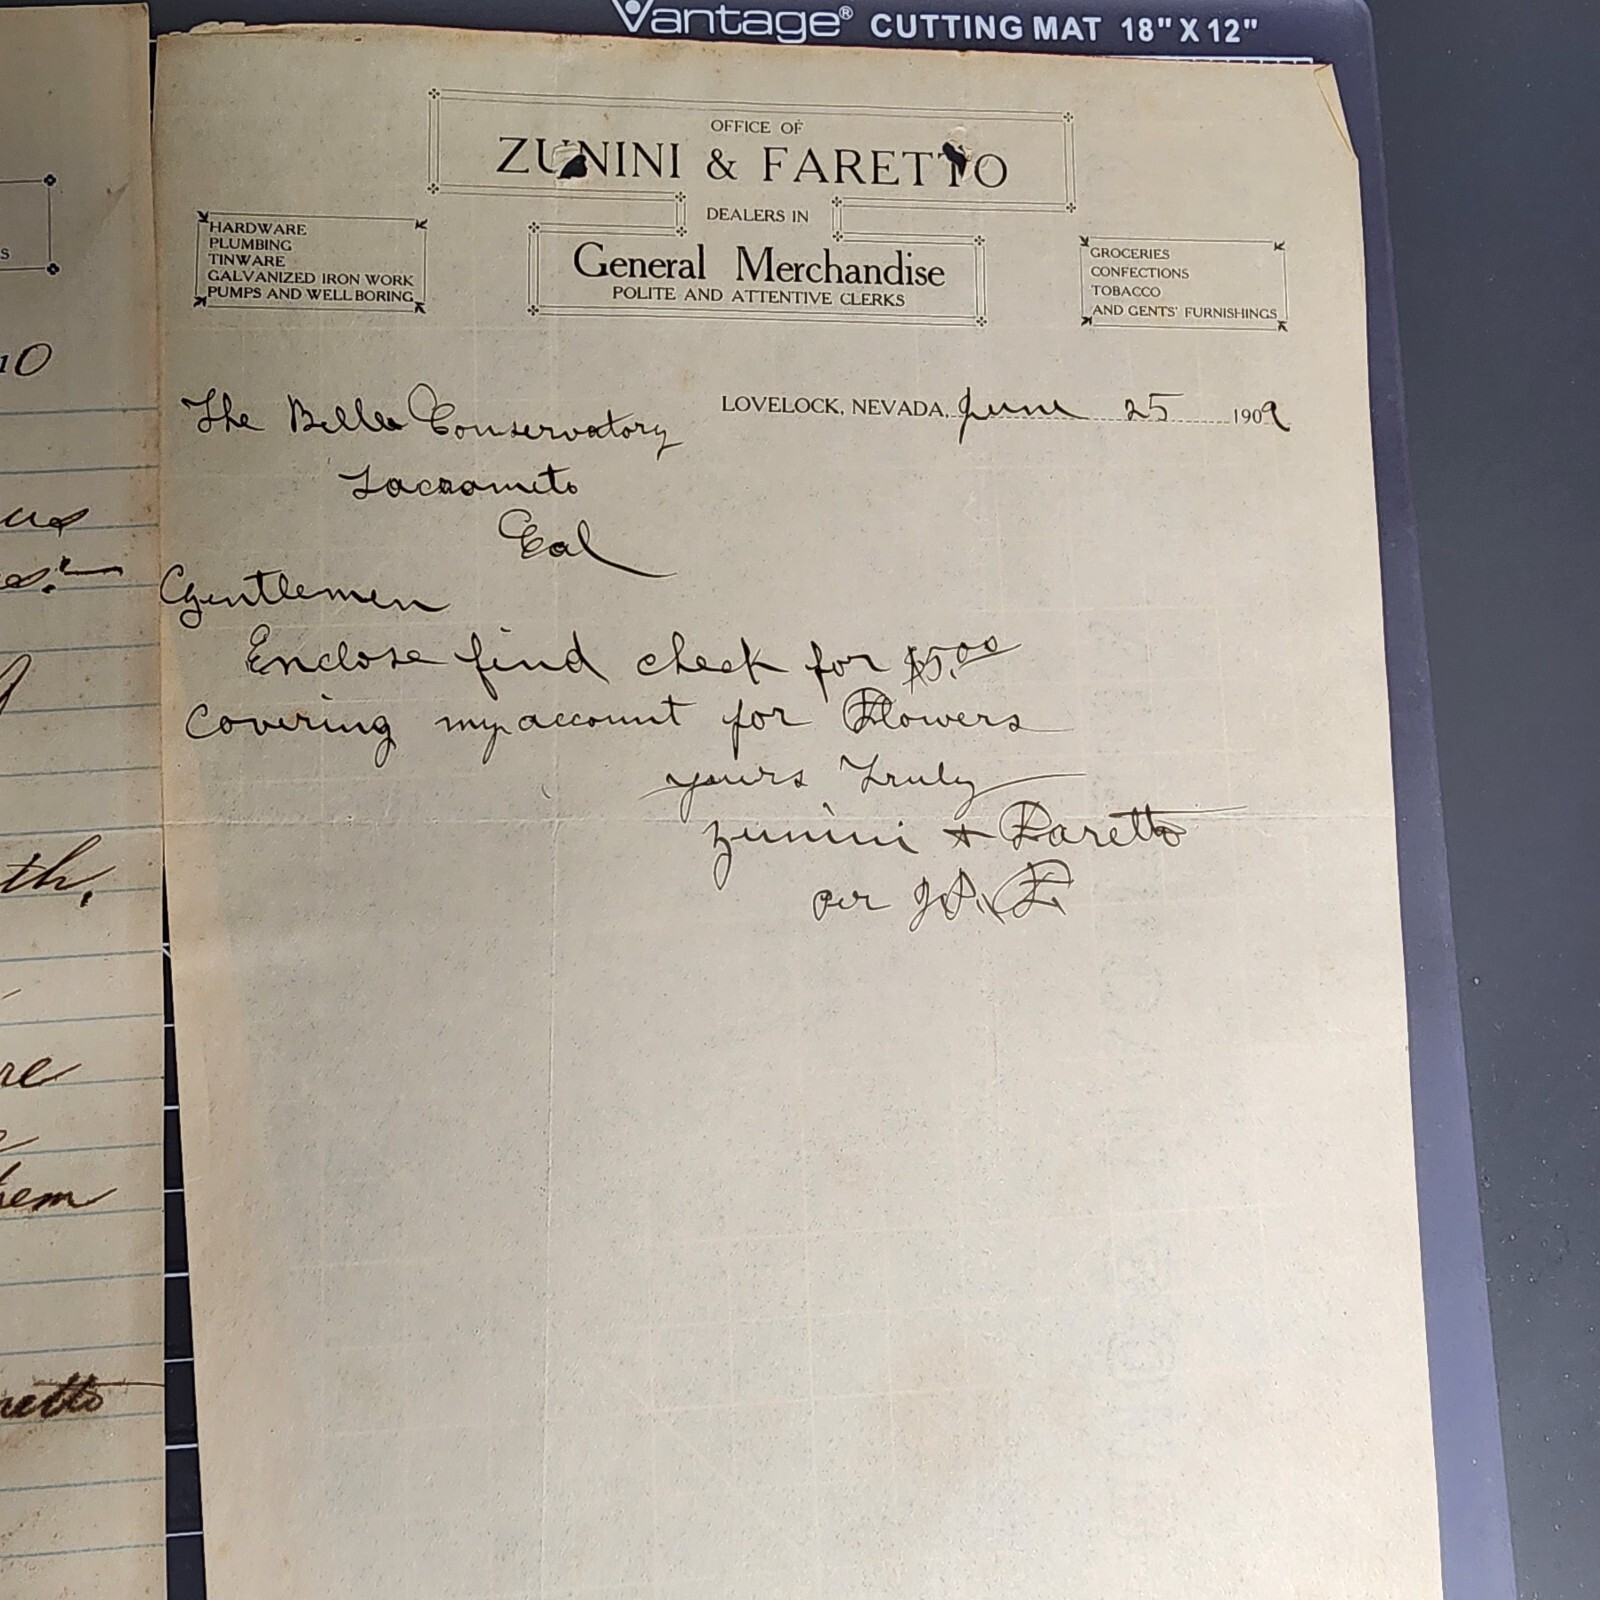 Vantage® CUTTING MAT 18" X 12"
OFFICE OF
ZUNINI & FARETTO
DEALERS IN
General Merchandise
POLITE AND ATTENTIVE CLERKS
HARDWARE
PLUMBING
TINWARE
GALVANIZED IRON WORK
PUMPS AND WELL BORING
GROCERIES
CONFECTIONS
TOBACCO
AND GENTS' FURNISHINGS
LOVELOCK, NEVADA, June 25 1909
The Bell Conservatory
Sacramito
Cal
Gentlemen
Enclose find check for $5.00
Covering my account for Flowers
yours Truly
Zunini & Faretto
per J.P. F.
S
10
us
th,
re
hem
retto